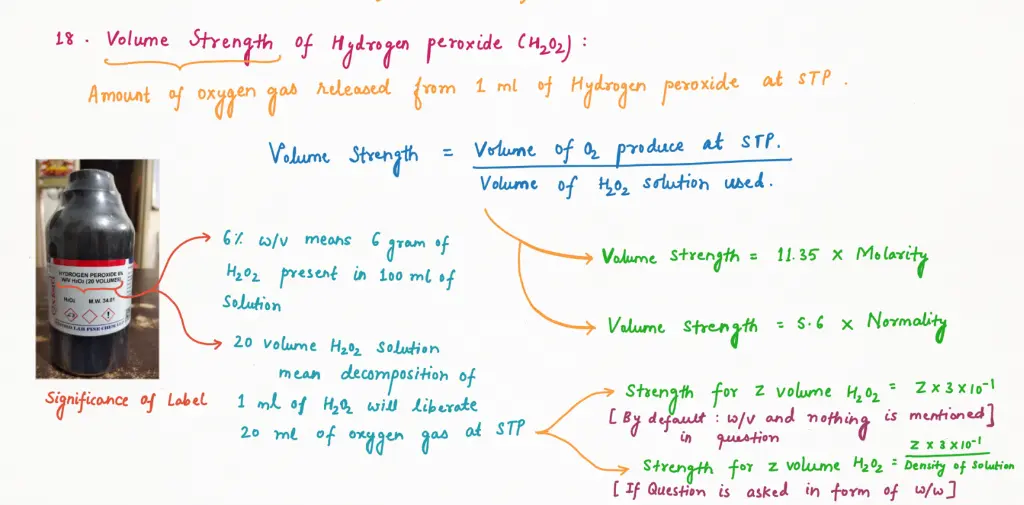 18. Volume Strength of Hydrogen peroxide (H₂O₂):
Amount of oxygen gas released from 1 ml of Hydrogen peroxide at STP.
Volume Strength = Volume of O₂ produce at STP.
Volume of H₂O₂ solution used.
6% w/v means 6 gram of
H₂O₂ present in 100 ml of
solution
20 volume H₂O₂ solution
mean decomposition of
1 ml of H₂O₂ will liberate
20 ml of oxygen gas at STP
HYDROGEN PEROXIDE 6%
(20 VOLUME)
H₂O₂ M.W. 34.01
Significance of Label
Volume strength = 11.35 × Molarity
Volume strength = 5.6 × Normality
Strength for Z volume H₂O₂ = Z × 3 × 10⁻¹
[By default : w/v and nothing is mentioned]
in question
Strength for Z volume H₂O₂ = Z × 3 × 10⁻¹
Density of Solution
[If Question is asked in form of w/w]